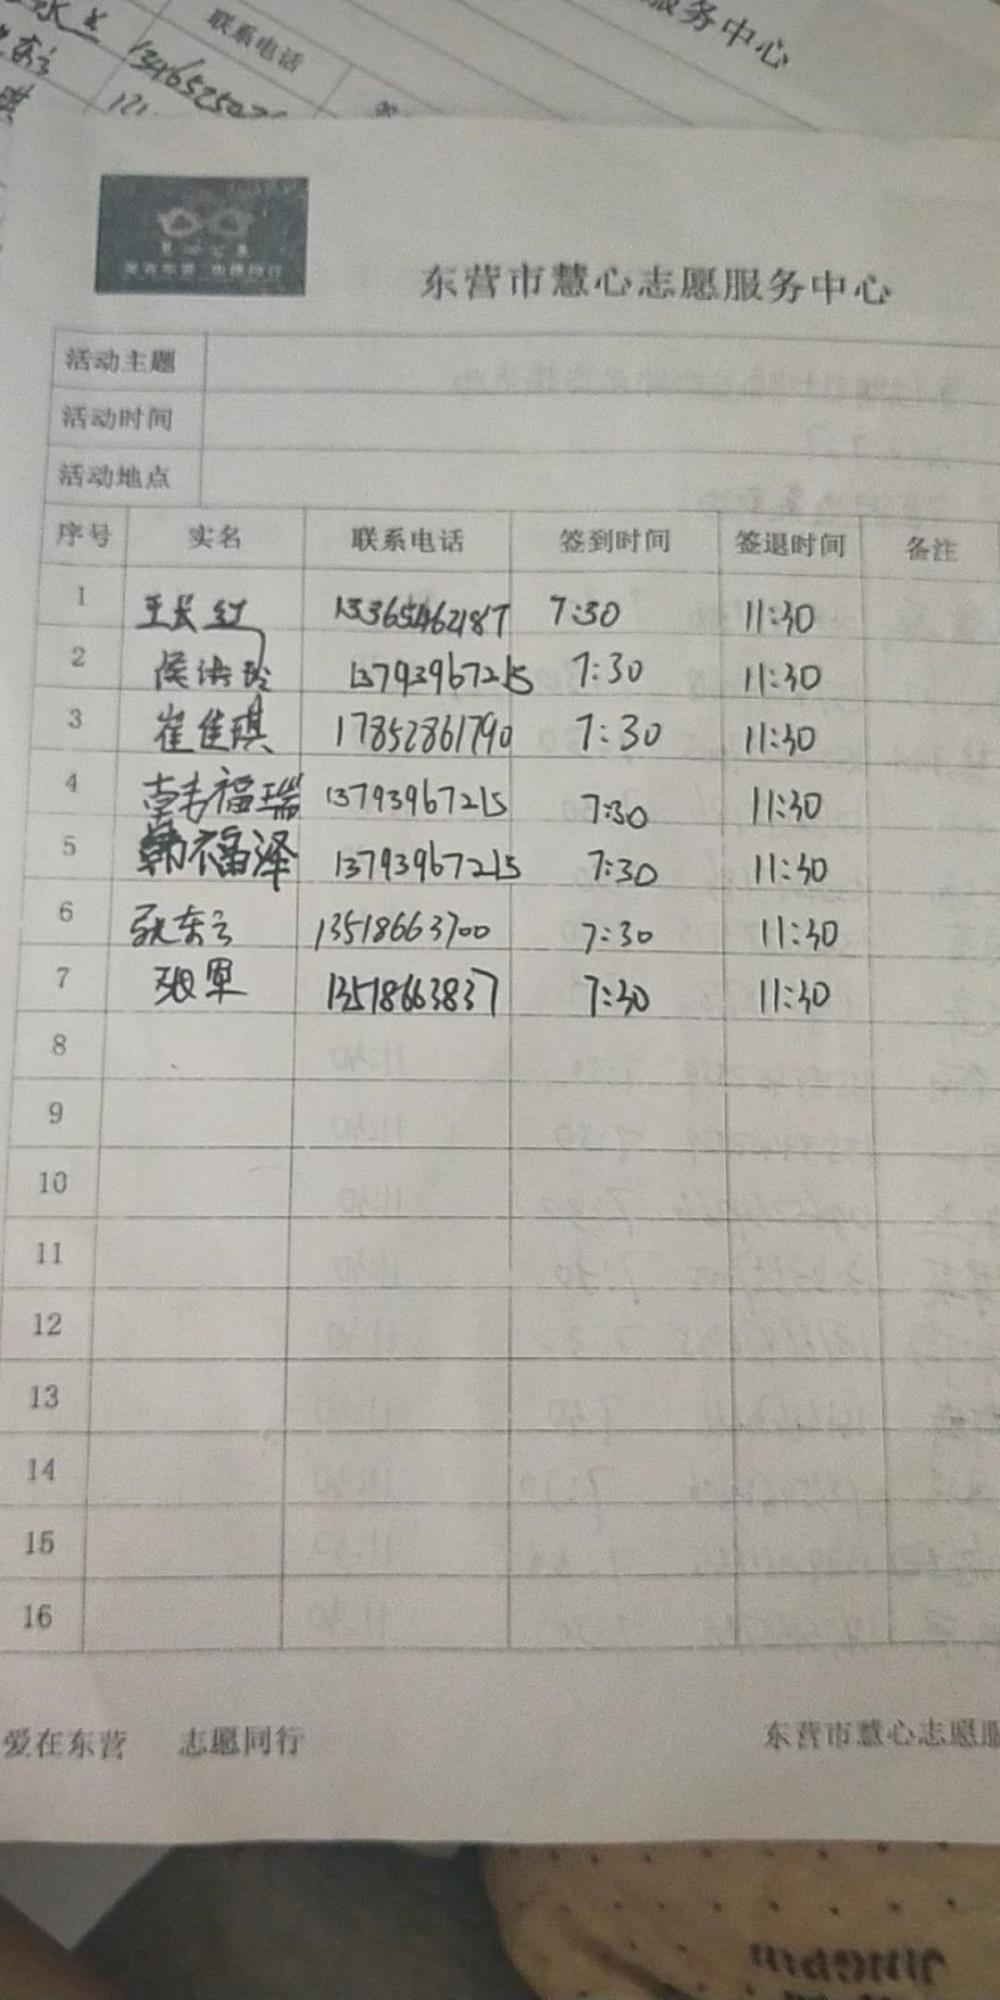 联系电话
服务中心
东营市慧心志愿服务中心
活动主题
活动时间
活动地点
序号 实名 联系电话 签到时间 签退时间 备注
1 王长红 13365462187 7:30 11:30
2 侯洪玲 13793967215 7:30 11:30
3 崔佳琪 17852861790 7:30 11:30
4 韩福瑞 13793967215 7:30 11:30
5 韩福泽 13793967215 7:30 11:30
6 张东云 13518663700 7:30 11:30
7 张军 13518663837 7:30 11:30
8
9
10
11
12
13
14
15
16
爱在东营 志愿同行 东营市慧心志愿服
JINGPIN